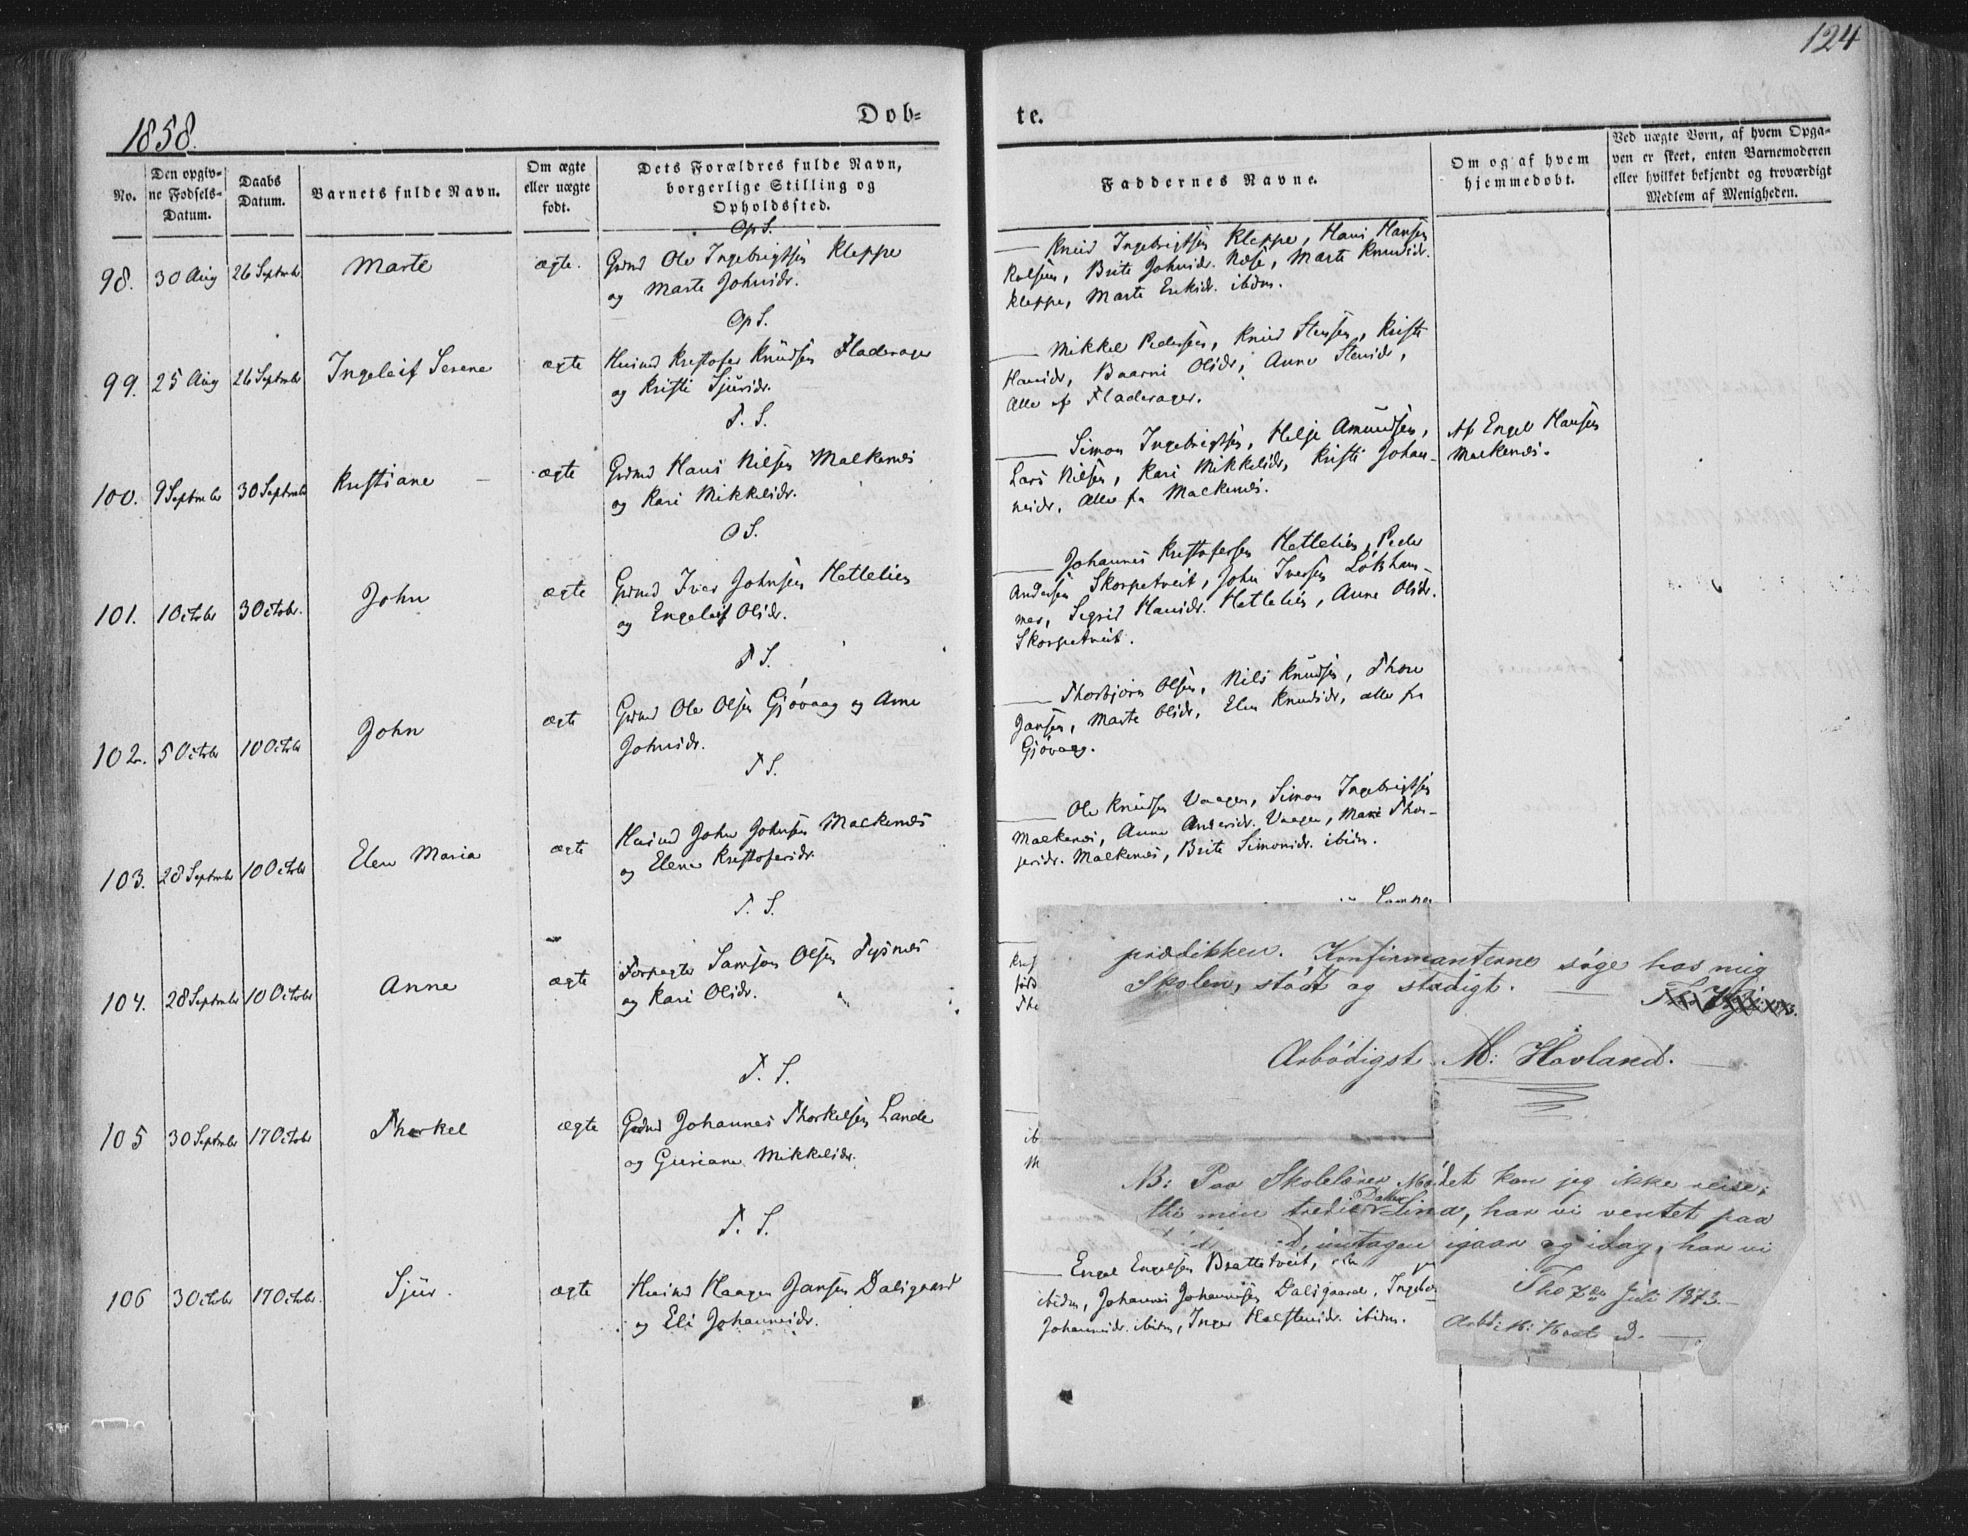 124
1858.
Dob-
te.
No.
Den opgiv-
ne Fødsels-
Datum.
Daabs
Datum.
Barnets fulde Navn.
Om ægte
eller uægte
født.
Dets Forældres fulde Navn,
borgerlige Stilling og
Opholdssted.
Faddernes Navne.
Om og af hvem
hjemmedøbt.
Ved uægte Børn, af hvem Opga-
ven er skeet, enten Barnemoderen
eller hvilket bekjendt og troværdigt
Medlem af Menigheden.
Op S.
98. 30 Aug 26 Septmbr Marte ægte. Grdmd Ole Ingebrigtsen Kleppe
og Marte Johnsdr.
Knud Ingebrigtsen Kleppe, Hans Hansen
Rolsen, Brite Johnsdr. Næse, Marte Knudsdr.
Kleppe, Marte Eriksdr. ibidm.
Op S.
99. 25 Aug 26 Septmbr Ingeleif Serene ægte Husmd Kristofer Knudsen Fladerager
og Kristi Sjursdr.
Mikkel Pedersen, Knud Stensen, Kristi
Hansdr, Baarni Olsdr, Anne Stensdr,
Alle af Fladerager.
T. S.
100. 9 Septmbr 30 Septmbr Kristiane ægte Grdmd Hans Nilsen Malkenæs
og Kari Mikkelsdr.
Simon Ingebrigtsen, Helje Amundsen,
Lars Nilsen, Kari Mikkelsdr, Kristi Johan-
nesdr, Alle fra Malkenæs.
Af Engel Hansen
Malkenæs.
O S.
101. 1 Octobr 3 Octobr. John ægte Grdmd Iver Johnsen Hettelien
og Engeleif Olsdr.
Johannes Kristofersen Hettelien, Peder
Andersen Skorpetveit, John Iversen Løkham-
mer, Sigrid Hansdr. Hettelien, Anne Olsdr.
Skorpetveit.
T S.
102. 5 Octobr 10 Octobr John ægte Grdmd Ole Olsen Gjøvaag og Anne
Johnsdr.
Thorbjørn Olsen, Nils Knudsen, Thore
Jansen, Marte Olsdr, Elen Knudsdr, alle fra
Gjøvaag.
T S.
103. 28 Septmbr 10 Octobr Elen Maria ægte Husmd John Johnsen Malkenæs
og Elene Kristofersdr.
Ole Knudsen Vaagen, Simon Ingebrigtsen
Malkenæs, Anne Andersdr. Vaagen, Mari Thor-
jersdr. Malkenæs, Brite Simonsdr. ibidm.
T. S.
104. 28 Septmbr 10 Octobr Anne ægte Forpagter Samson Olsen Tysnæs
og Kari Olsdr.
T. S.
105 30 Septmbr 17 Octobr Thorkel ægte Grdmd Johannes Thorkelsen Lande
og Guriane Mikkelsdr.
T. S.
106 3 Octobr 17 Octobr. Sjur. ægte Husmd Haagen Jansen Dalsgaard
og Eli Johannesdr.
Engel Engelsen Brattetveit,
ibidm, Johannes Johannesen Dalsgaard,
Johannesdr. ibidm, Inger Halstensdr. ibidm.
prædikken. Konfirmanterne søge hos mig
Skolen, stødt og stadigt.
Ærbødigst M: Hovland.
NB: Paa Skolelærer Mødet kan jeg ikke reise;
thi min tredie Datter Lina, har vi ventet paa
inntagen igaar og idag, har vi
7de Juli 1873.